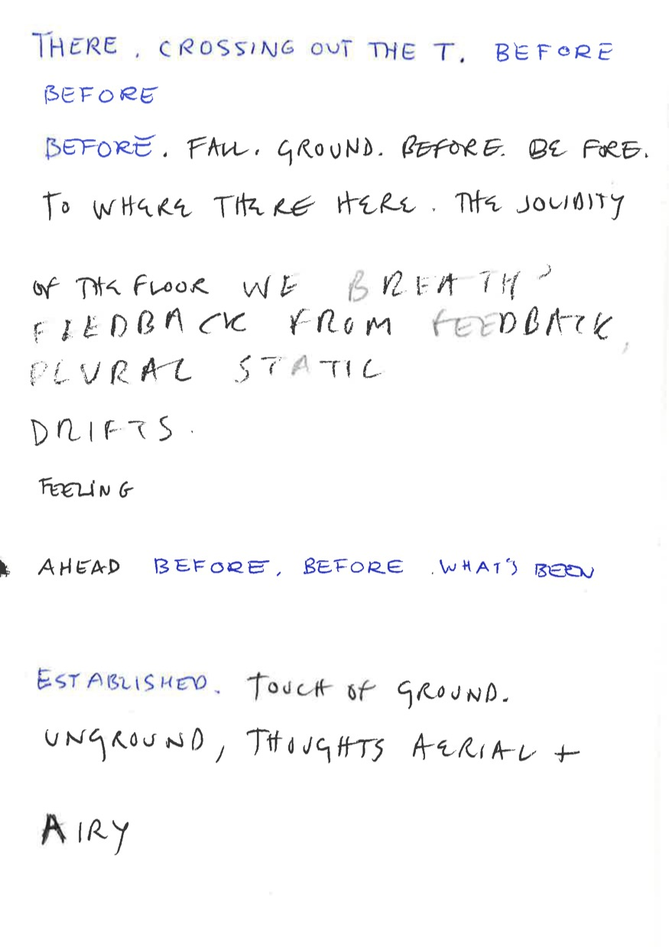 THERE. CROSSING OUT THE T. BEFORE
BEFORE
BEFORE. FALL. GROUND. BEFORE. BE FORE.
TO WHERE THERE HERE. THE SOLIDITY
OF THE FLOOR WE BREATH,
FEEDBACK FROM FEEDBACK,
PLURAL STATIC
DRIFTS.
FEELING
AHEAD BEFORE, BEFORE. WHAT'S BEEN
ESTABLISHED. TOUCH OF GROUND.
UNGROUND, THOUGHTS AERIAL +
AIRY